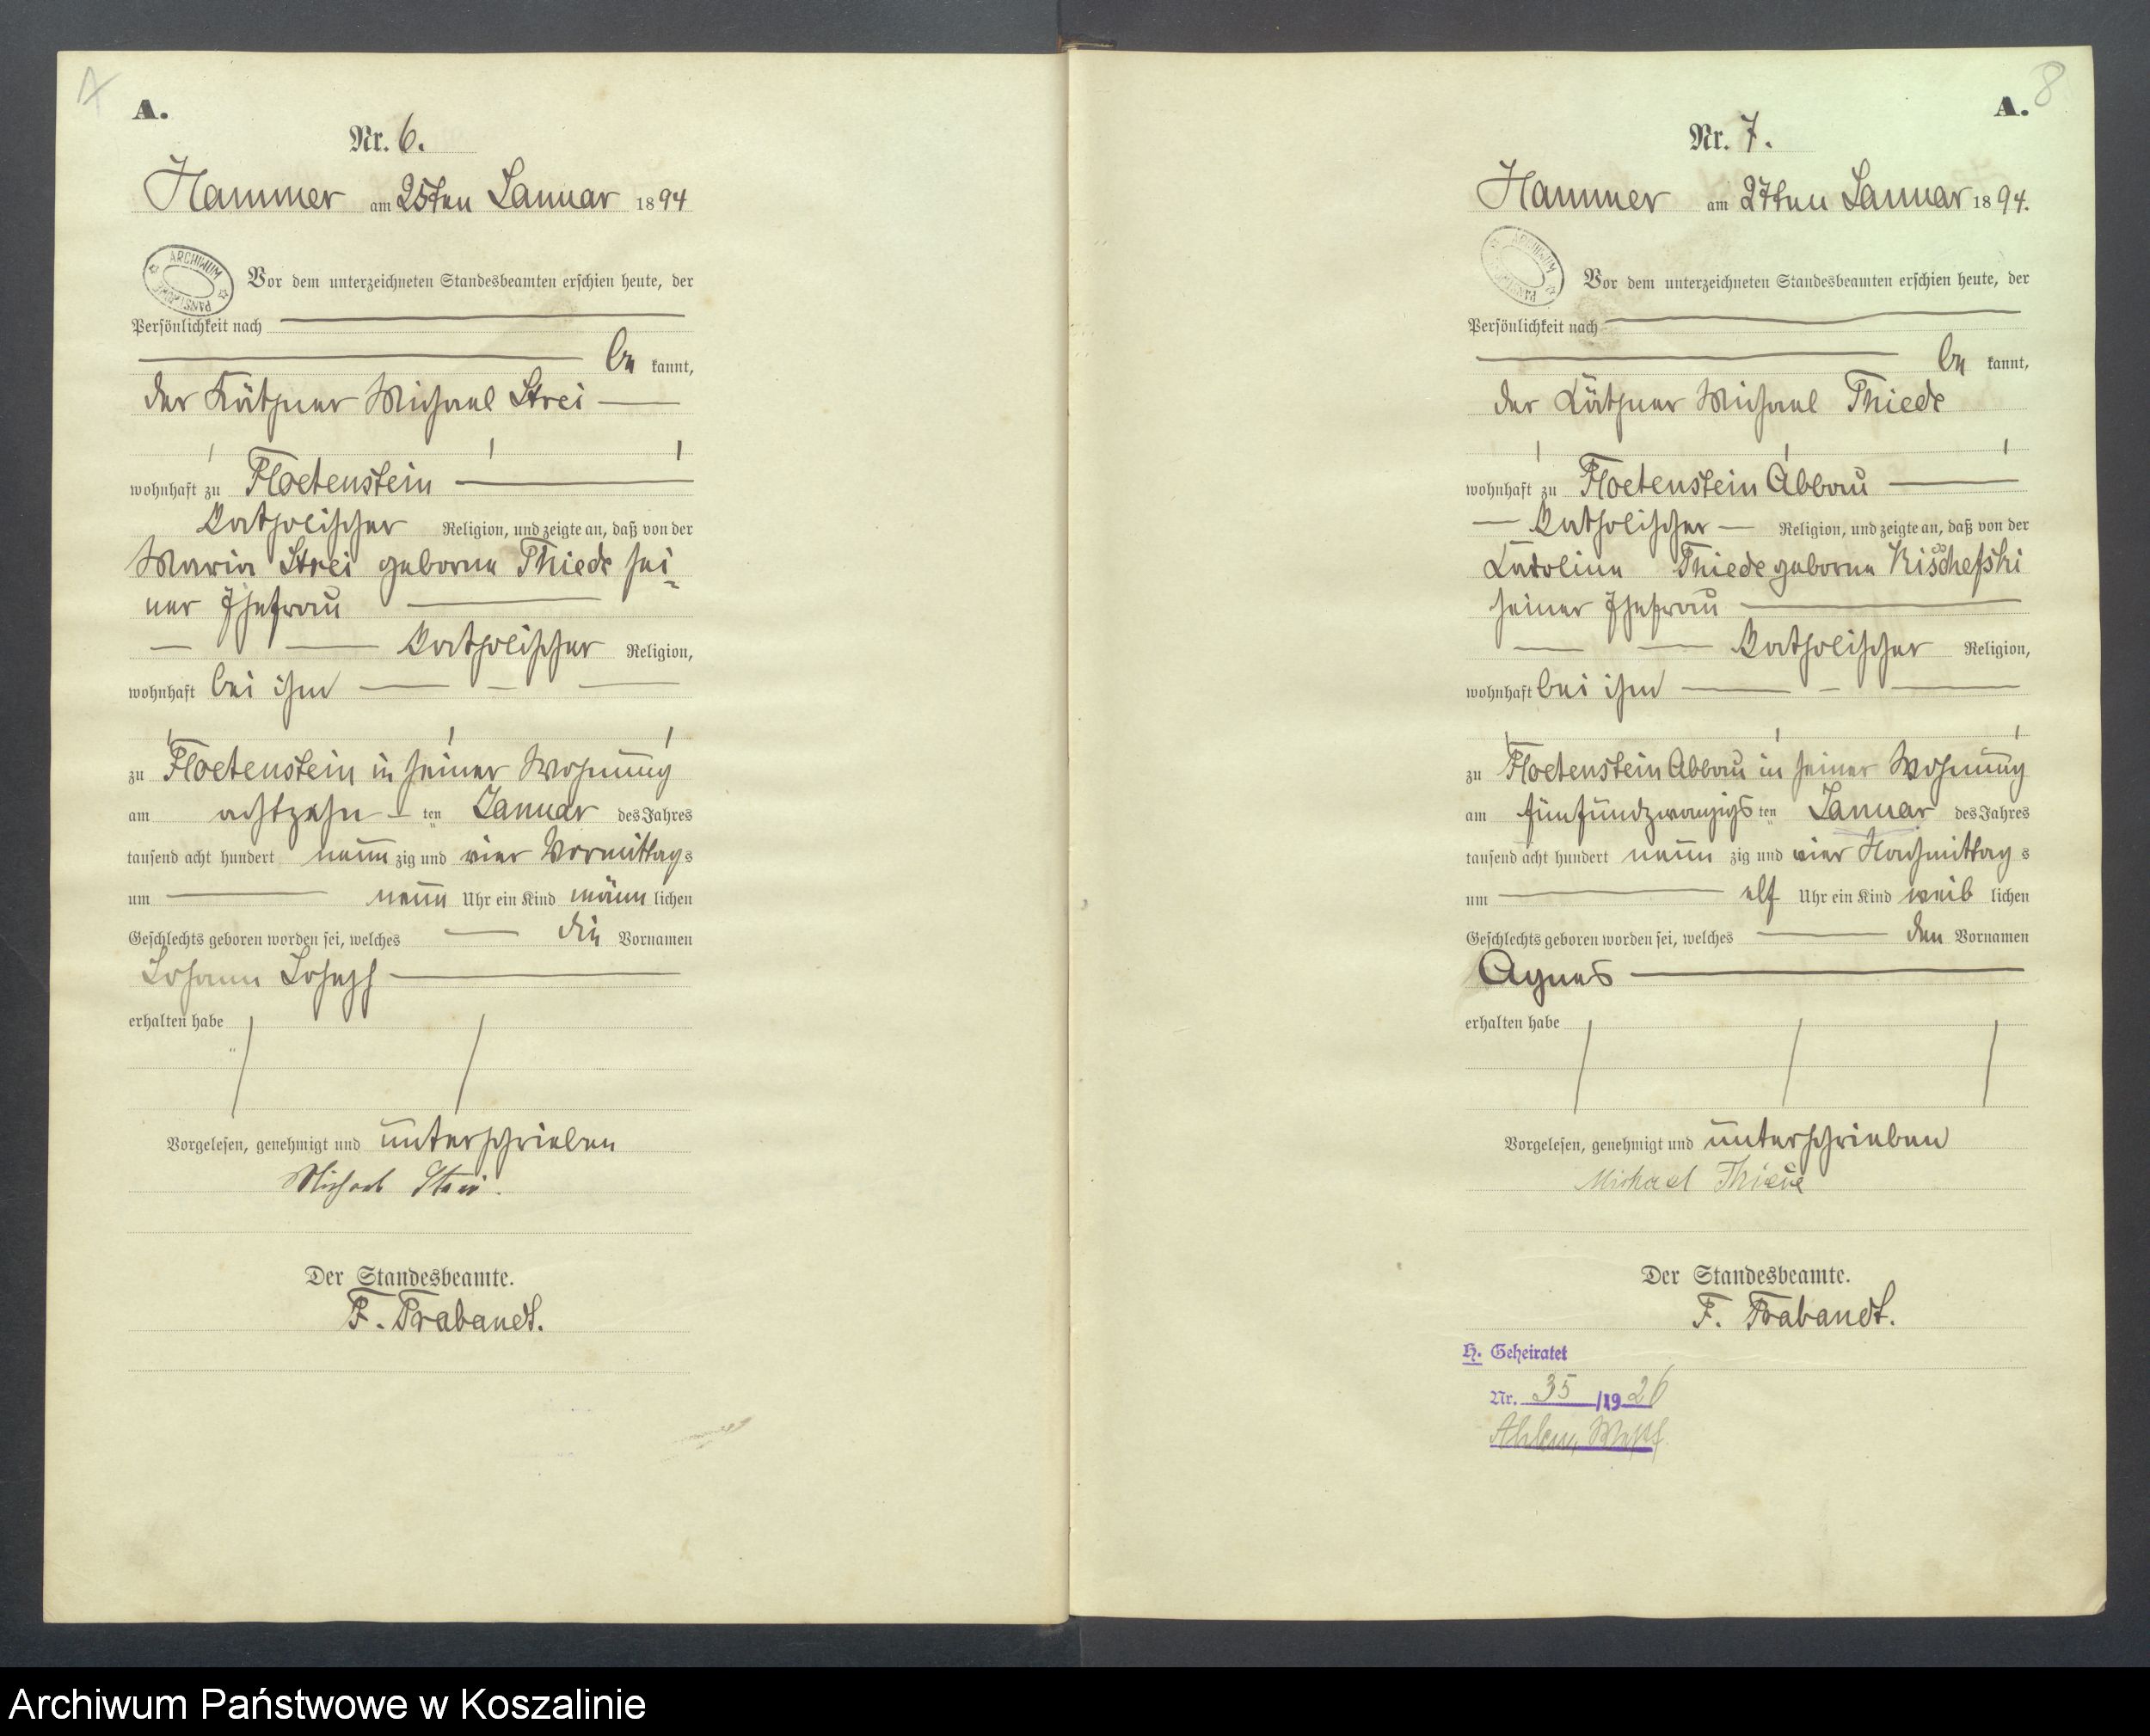 A.
Nr. 6.
Hammer am 25ten Januar 1894
ARCHIWUM PAŃSTWOWE
Vor dem unterzeichneten Standesbeamten erschien heute, der
Persönlichkeit nach
be kannt,
der Käthner Michael Strei
wohnhaft zu Floetenstein
katholischer Religion, und zeigte an, daß von der
Maria Strei geborne Thiede sei-
ner Ehefrau
katholischer Religion,
wohnhaft bei ihm
zu Floetenstein in seiner Wohnung
am achtzehn ten Januar des Jahres
tausend acht hundert neun zig und vier Vormittag s
um neun Uhr ein Kind männ lichen
Geschlechts geboren worden sei, welches die Vornamen
Johann Joseph
erhalten habe
Vorgelesen, genehmigt und unterschrieben
Michael Strei.
Der Standesbeamte.
F. Trabandt.
8
A.
Nr. 7.
Hammer am 27ten Januar 1894.
ARCHIWUM PAŃSTWOWE
Vor dem unterzeichneten Standesbeamten erschien heute, der
Persönlichkeit nach
be kannt,
der Käthner Michael Thiede
wohnhaft zu Floetenstein Abbau
katholischer Religion, und zeigte an, daß von der
Karoline Thiede geborne Kischefski
seiner Ehefrau
katholischer Religion,
wohnhaft bei ihm
zu Floetenstein Abbau in seiner Wohnung
am fünfundzwanzigs ten Januar des Jahres
tausend acht hundert neun zig und vier Nachmittag s
um elf Uhr ein Kind weib lichen
Geschlechts geboren worden sei, welches den Vornamen
Agnes
erhalten habe
Vorgelesen, genehmigt und unterschrieben
Michael Thiede
Der Standesbeamte.
F. Trabandt.
H. Geheiratet
Nr. 35 /1926
Ahlen, Westf.
Archiwum Państwowe w Koszalinie